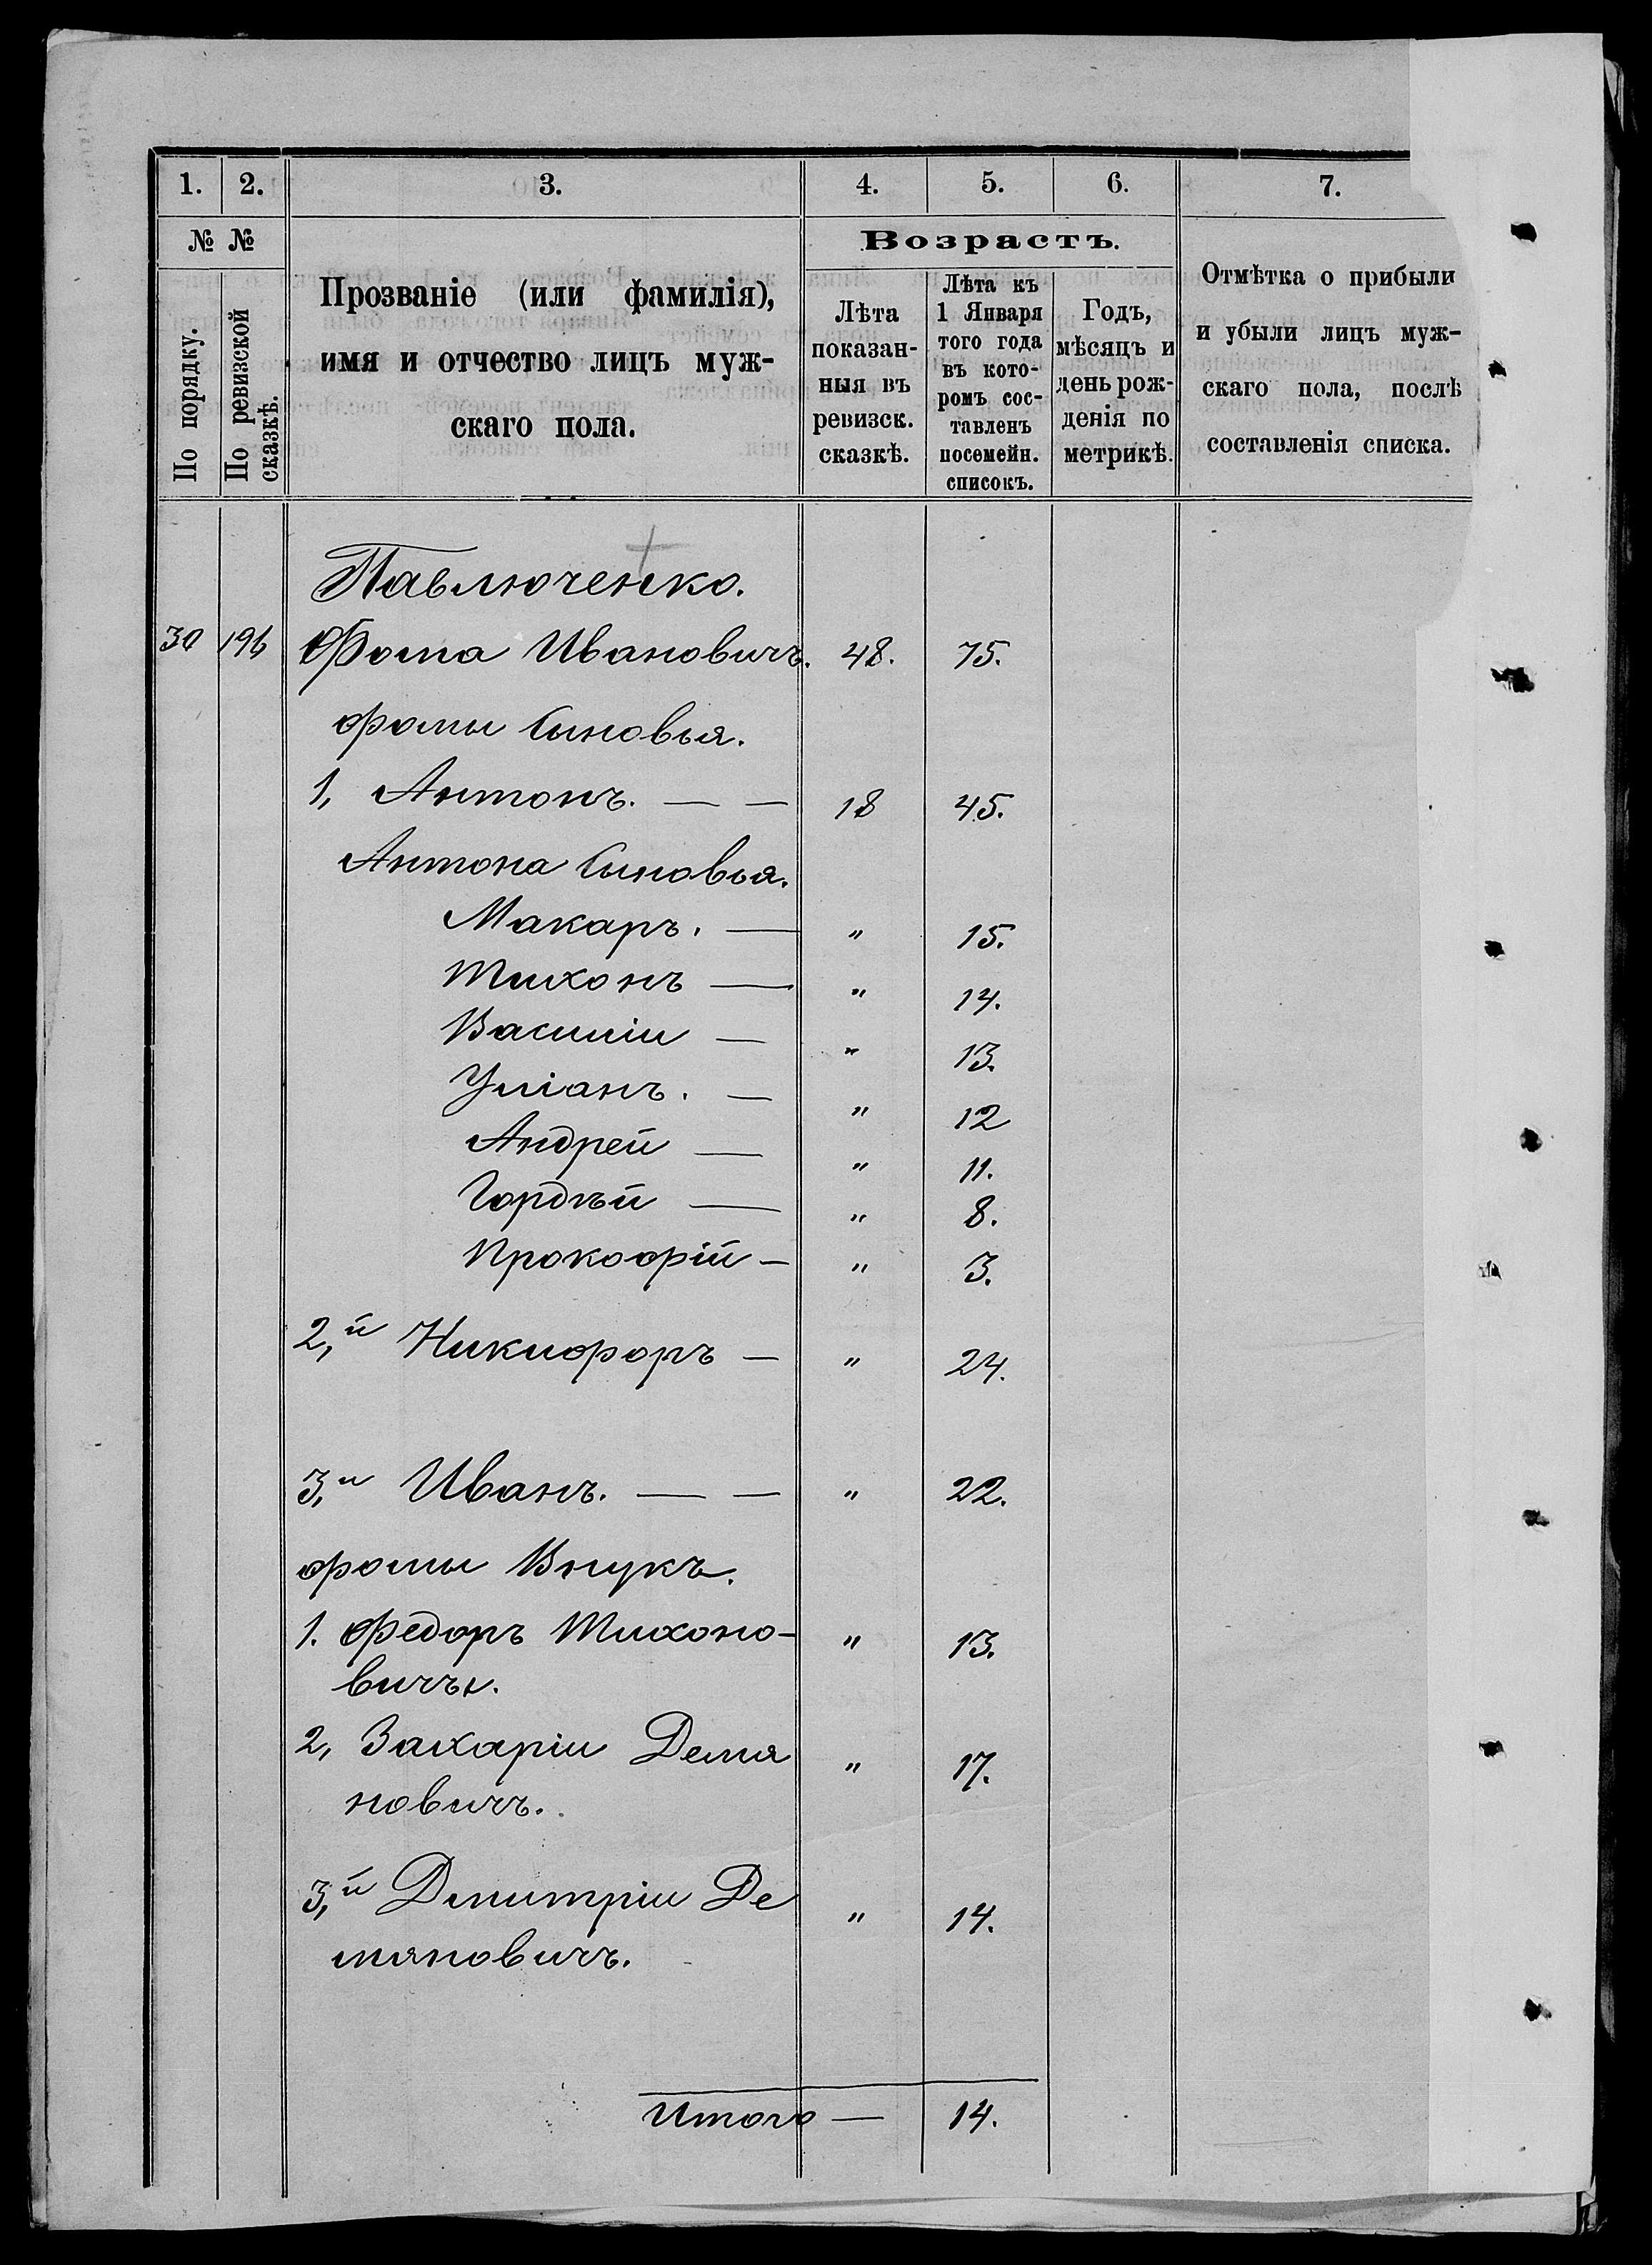 1. 2. 3. 4. 5. 6. 7.
№ №
По порядку.
По ревизской сказкѣ.
Прозваніе (или фамилія),
имя и отчество лицъ муж-
скаго пола.
Возрастъ.
Лѣта
показан-
ныя въ
ревизск.
сказкѣ.
Лѣта къ
1 Января
того года
въ кото-
ромъ сос-
тавленъ
посемейн.
списокъ.
Годъ,
мѣсяцъ и
день рож-
денія по
метрикѣ.
Отмѣтка о прибыли
и убыли лицъ муж-
скаго пола, послѣ
составленія списка.
Павлюченко.
30 196 Фома Ивановичъ. 48. 75.
Фомы Сыновья.
1, Антонъ. — — 18 45.
Антона Сыновья.
Макаръ. — " 15.
Тихонъ — " 14.
Василіи — " 13.
Уліанъ. — " 12
Андрей — " 11.
Гордѣй — " 8.
Прокофій — " 3.
2,й Никифоръ — " 24.
3,и Иванъ. — — " 22.
Фомы Внукъ.
1. Федоръ Тихоно- " 13.
вичъ.
2, Захаріи Демя " 17.
новичъ.
3,й Дмитріи Де " 14.
мяновичъ.
Итого — 14.